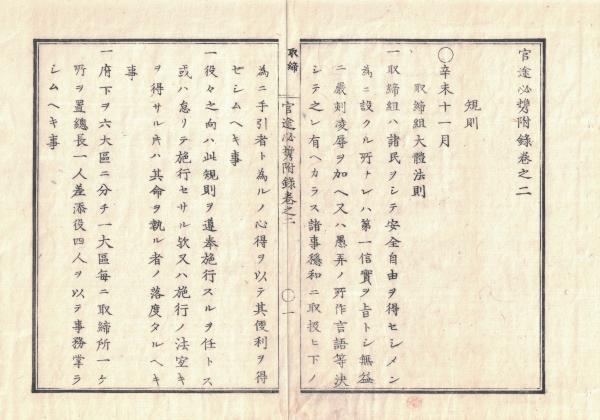 官途必携附錄卷之二
規則
〇辛未十一月
取締組大體法則
一取締組ハ諸民ヲシテ安全自由ヲ得セシメン
為ニ設クル所ナレハ第一信實ヲ旨トシ無益
ニ嚴刻凌辱ヲ加ヘ又ハ愚弄ノ所作言語等決
シテ之レ有ヘカラス諸事穩和ニ取扱ヒ下ノ
取締
官途必携附錄卷之二
〇一
為ニ手引者ト為ルノ心得ヲ以テ其便利ヲ得
セシムヘキ事
一役々之向ハ此規則ヲ遵奉施行スルヲ任トス
或ハ怠リテ施行セサル欤又ハ施行ノ法空キ
ヲ得サルキハ其命ヲ執ル者ノ落度タルヘキ
事
一府下ヲ六大區ニ分チ一大區每ニ取締所一ケ
所ヲ置總長一人差添役四人ヲ以テ事務掌ラ
シムヘキ事